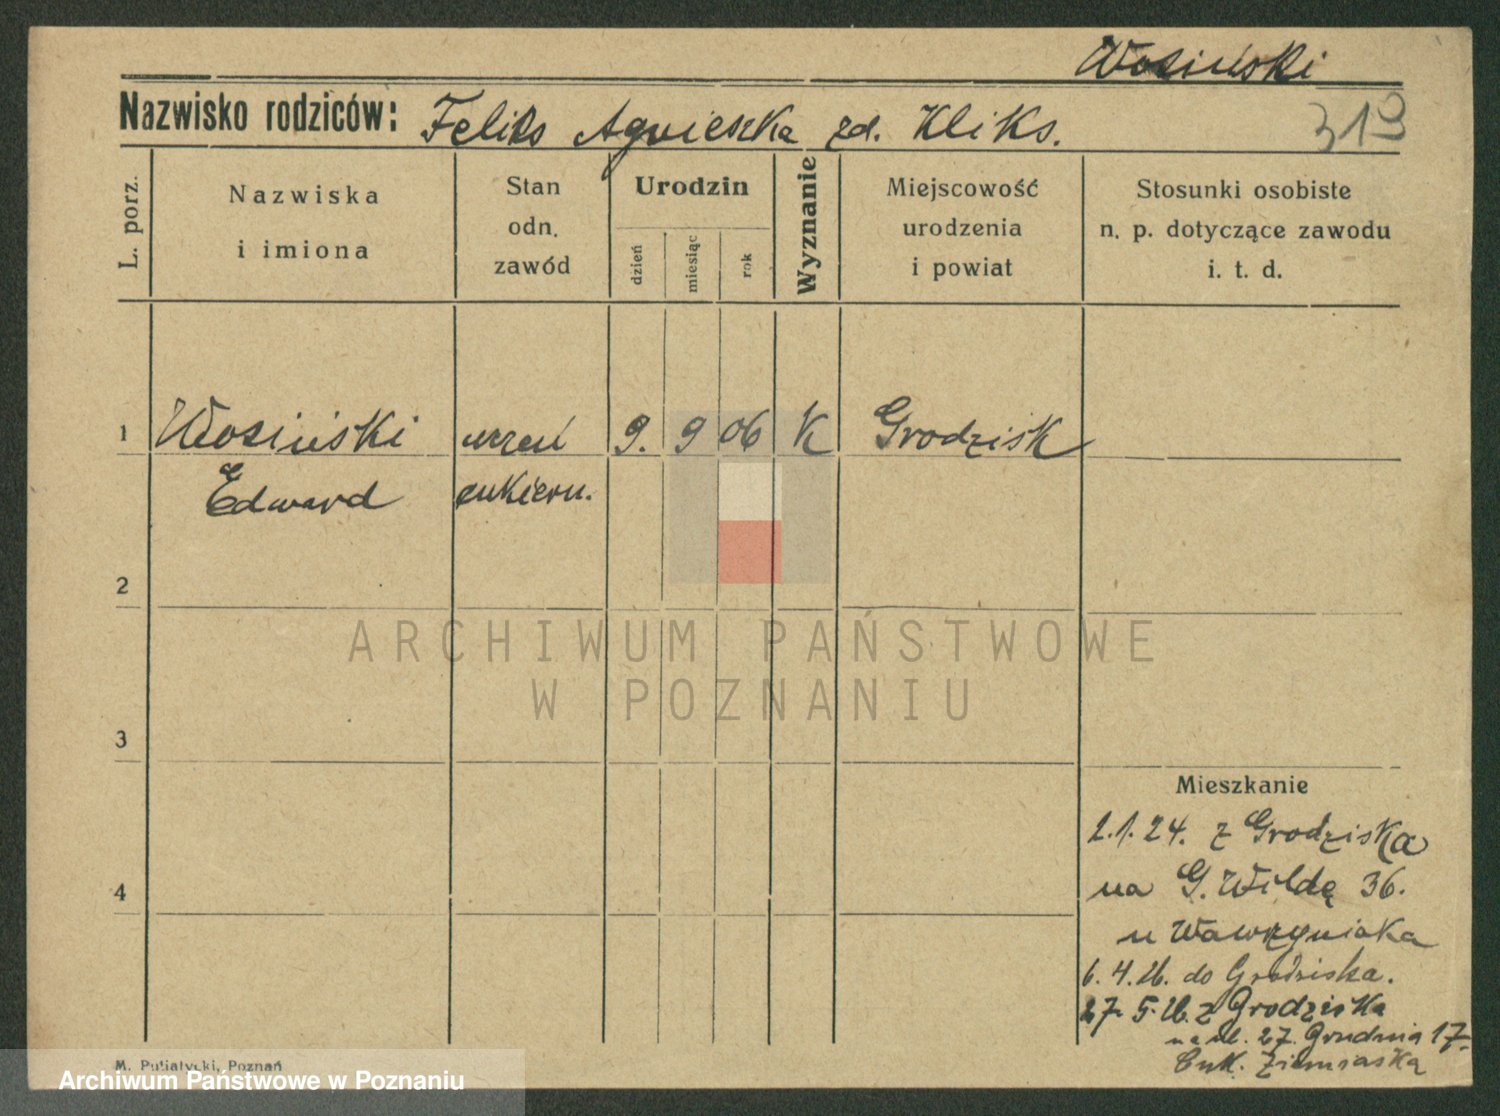 Wosiński
Nazwisko rodziców: Feliks Agnieszka zd. Kliks.
319
L. porz.
Nazwiska
i imiona
Stan
odn.
zawód
Urodzin
dzień
miesiąc
rok
Wyznanie
Miejscowość
urodzenia
i powiat
Stosunki osobiste
n. p. dotyczące zawodu
i. t. d.
1 Wosiński uczeń 9. 9 06 K Grodzisk
Edward cukiern.
2
3
4
ARCHIWUM PAŃSTWOWE
W POZNANIU
Mieszkanie
2.1.24. z Grodziska
na G. Wildę 36.
u Wawrzyniaka
6.4.26. do Grodziska.
27.5.26. z Grodziska
na ul. 27. Grudnia 17.
Cuk. Ziemiaska
M. Putiatycki, Poznań
Archiwum Państwowe w Poznaniu